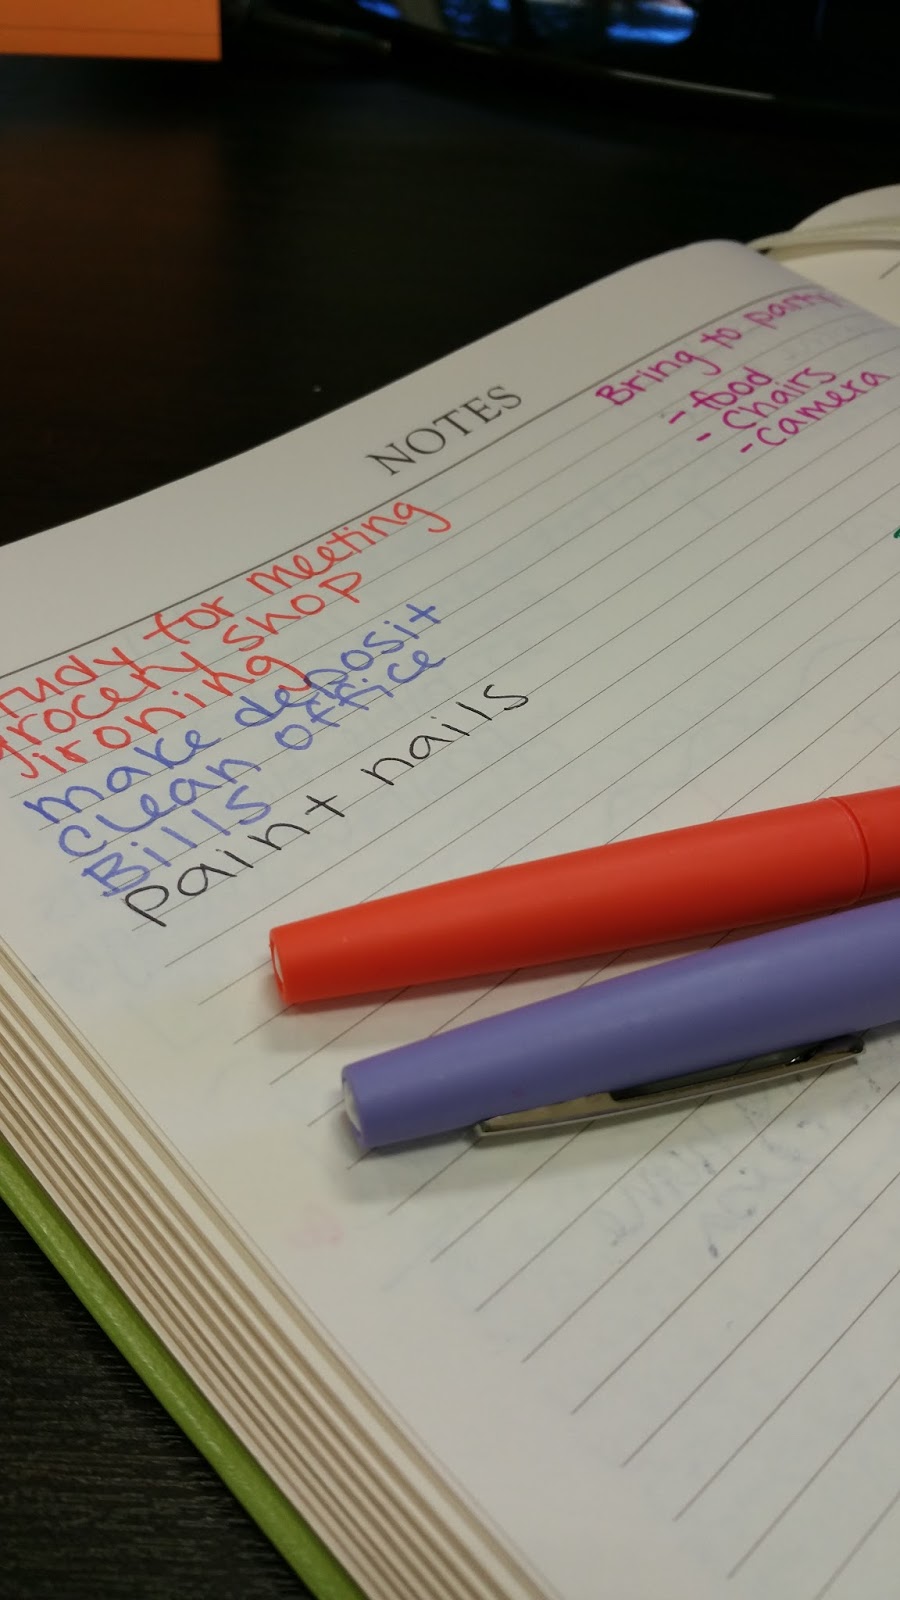 NOTES
tudy for meeting
grocery shop
ironing
make deposit
clean office
Bills
paint nails
Bring to party:
- food
- Chairs
- camera